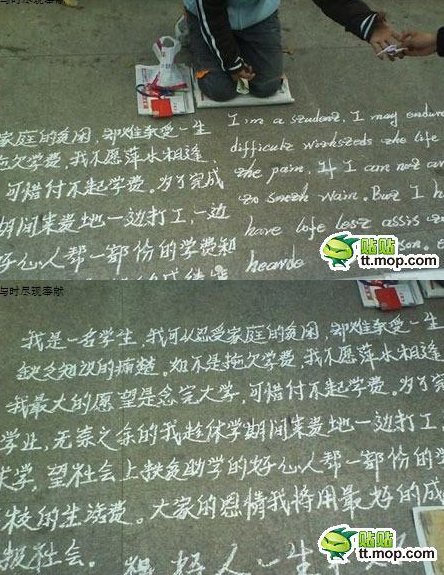 与时尽现奉献
家庭的贫困,却难承受一生
拖欠学费,我不愿萍水相逢,
可惜付不起学费。为了完成
期间来贵地一边打工,一边
好心人帮一部份的学费和
I'm a student. I may endure
difficult the life
the pain. If I can not
But I
have life lest assis
贴贴
tt.mop.com
与时尽现奉献
我是一名学生,我可以忍受家庭的贫困,却难承受一生
缺乏知识的痛楚。如不是拖欠学费,我不愿萍水相逢
我最大的愿望是念完大学,可惜付不起学费。为了完
学业,无奈之余的我趁休学期间来贵地一边打工,
大学,望社会上扶贫助学的好心人帮一部份的学
校的生活费。大家的恩情我将用最好的成
报社会。 好人一生
贴贴
tt.mop.com